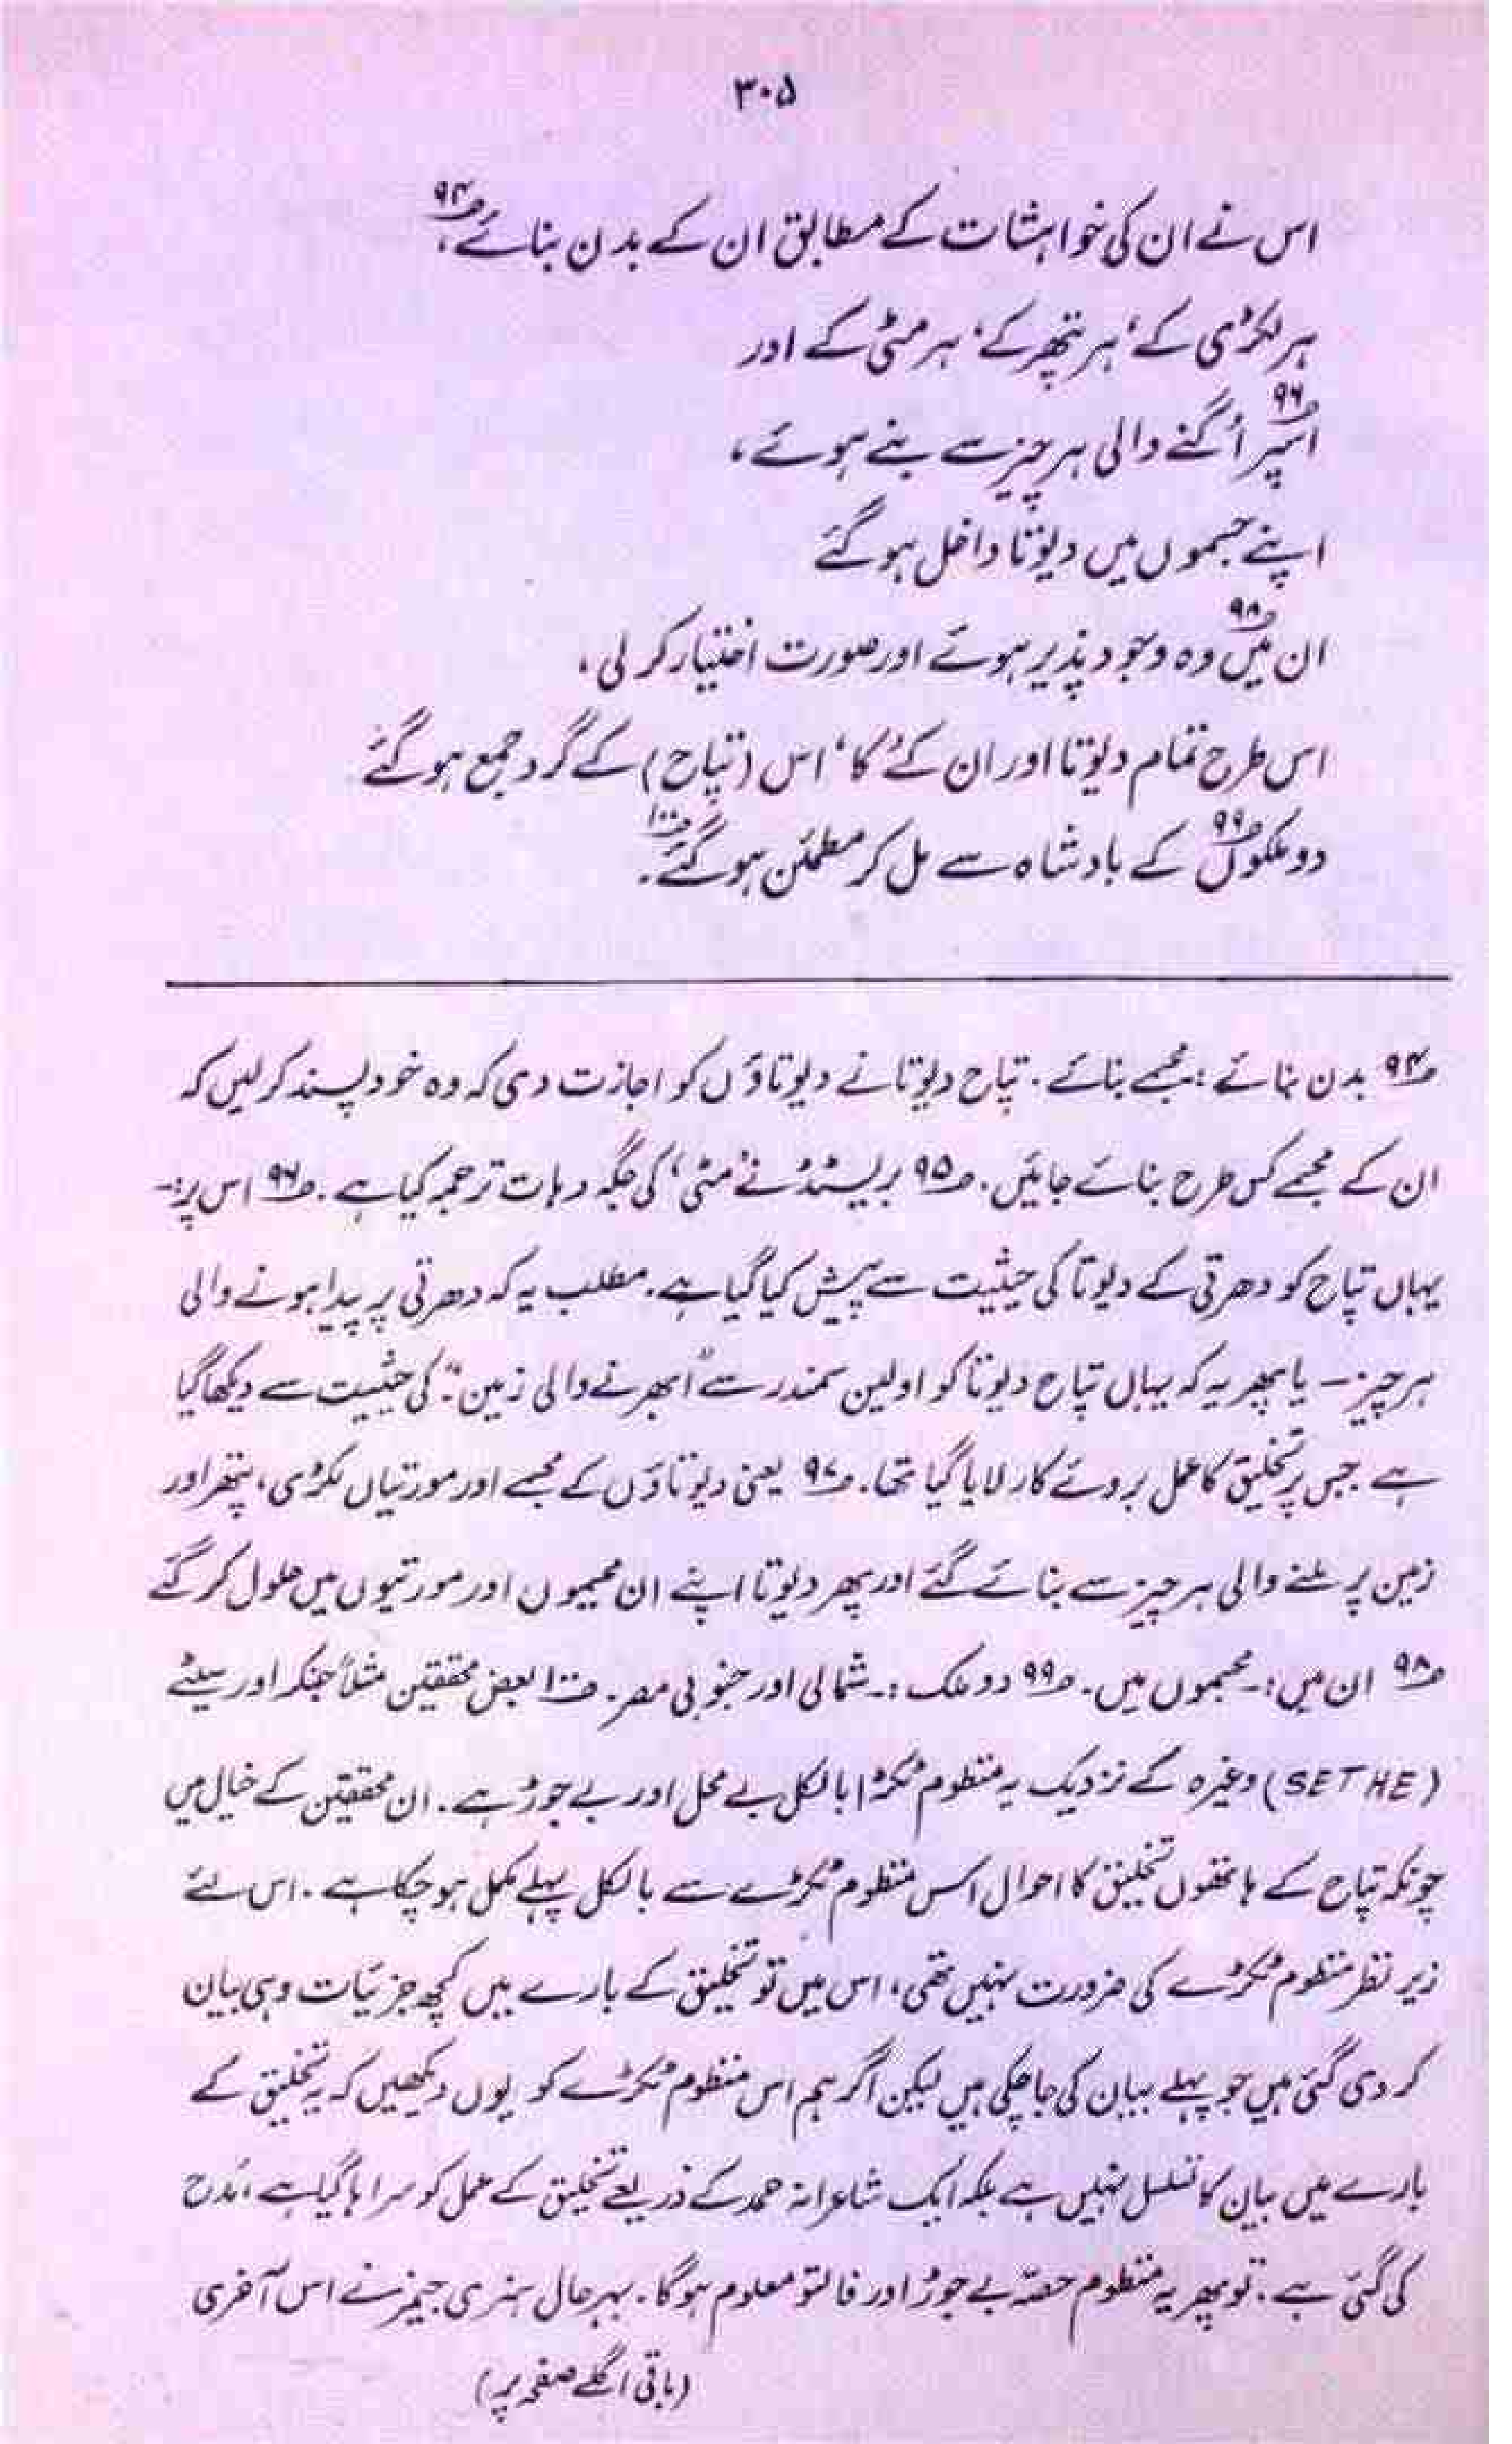 ۳۰۵
اس نے ان کی خواہشات کے مطابق ان کے بدن بنائے ۹۴؎،
ہر لکڑی کے، ہر پتھر کے، ہر مٹی کے اور
اس پر ۹۶؎ اُگنے والی ہر چیز سے بنے ہوئے،
اپنے جسموں میں دیوتا داخل ہو گئے
ان میں ۹۸؎ وہ وجود پذیر ہوئے اور صورت اختیار کر لی،
اس طرح تمام دیوتا اور ان کے ’کا‘ اس (تپاح) کے گرد جمع ہو گئے
دو ملکوں ۹۹؎ کے بادشاہ سے مل کر مطمئن ہو گئے ۱۰۰؎۔
۹۴؎ بدن بنائے :۔ مجسمے بنائے۔ تپاح دیوتا نے دیوتاؤں کو اجازت دی کہ وہ خود پسند کر لیں کہ
ان کے مجسمے کس طرح بنائے جائیں۔ ۹۵؎ بریسٹڈ نے ’مٹی‘ کی جگہ دہات ترجمہ کیا ہے۔ ۹۶؎ اس پر :۔
یہاں تپاح کو دھرتی کے دیوتا کی حیثیت سے پیش کیا گیا ہے۔ مطلب یہ کہ دھرتی پر پیدا ہونے والی
ہر چیز – یا پھر یہ کہ یہاں تپاح دیوتا کو اولین سمندر سے “ابھرنے والی زمین” کی حیثیت سے دیکھا گیا
ہے جس پر تخلیق کا عمل بروئے کار لایا گیا تھا۔ ۹۷؎ یعنی دیوتاؤں کے مجسمے اور مورتیاں لکڑی، پتھر اور
زمین پر ملنے والی ہر چیز سے بنائے گئے اور پھر دیوتا اپنے ان مجسموں اور مورتیوں میں حلول کر گئے
۹۸؎ ان میں :۔ مجسموں میں۔ ۹۹؎ دو ملک :۔ شمالی اور جنوبی مصر۔ ۱۰۰؎ بعض محققین مثلاً جنکر اور سیٹے
(SETHE) وغیرہ کے نزدیک یہ منظوم ٹکڑا بالکل بے محل اور بے جوڑ ہے۔ ان محققین کے خیال میں
چونکہ تپاح کے ہاتھوں تخلیق کا احوال اس منظوم ٹکڑے سے بالکل پہلے مکمل ہو چکا ہے۔ اس لئے
زیر نظر منظوم ٹکڑے کی ضرورت نہیں تھی، اس میں تو تخلیق کے بارے میں کچھ جزئیات وہی بیان
کر دی گئی ہیں جو پہلے بیان کی جا چکی ہیں لیکن اگر ہم اس منظوم ٹکڑے کو یوں دیکھیں کہ یہ تخلیق کے
بارے میں بیان کا تسلسل نہیں ہے بلکہ ایک شاعرانہ حمد کے ذریعے تخلیق کے عمل کو سراہا گیا ہے، مدح
کی گئی ہے۔ تو پھر یہ منظوم حصّہ بے جوڑ اور فالتو معلوم ہوگا۔ بہرحال ہنری جیمز نے اس آخری
(باقی اگلے صفحہ پر)